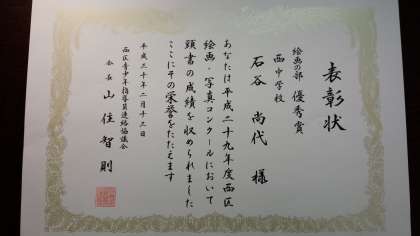 表彰状
絵画の部 優秀賞
西中学校
石谷 尚代 様
あなたは平成二十九年度西区
絵画・写真コンクールにおいて
頭書の成績を収められました
ここにその栄誉をたたえます
平成三十年二月十三日
西区青少年指導員連絡協議会
会長 山住智則